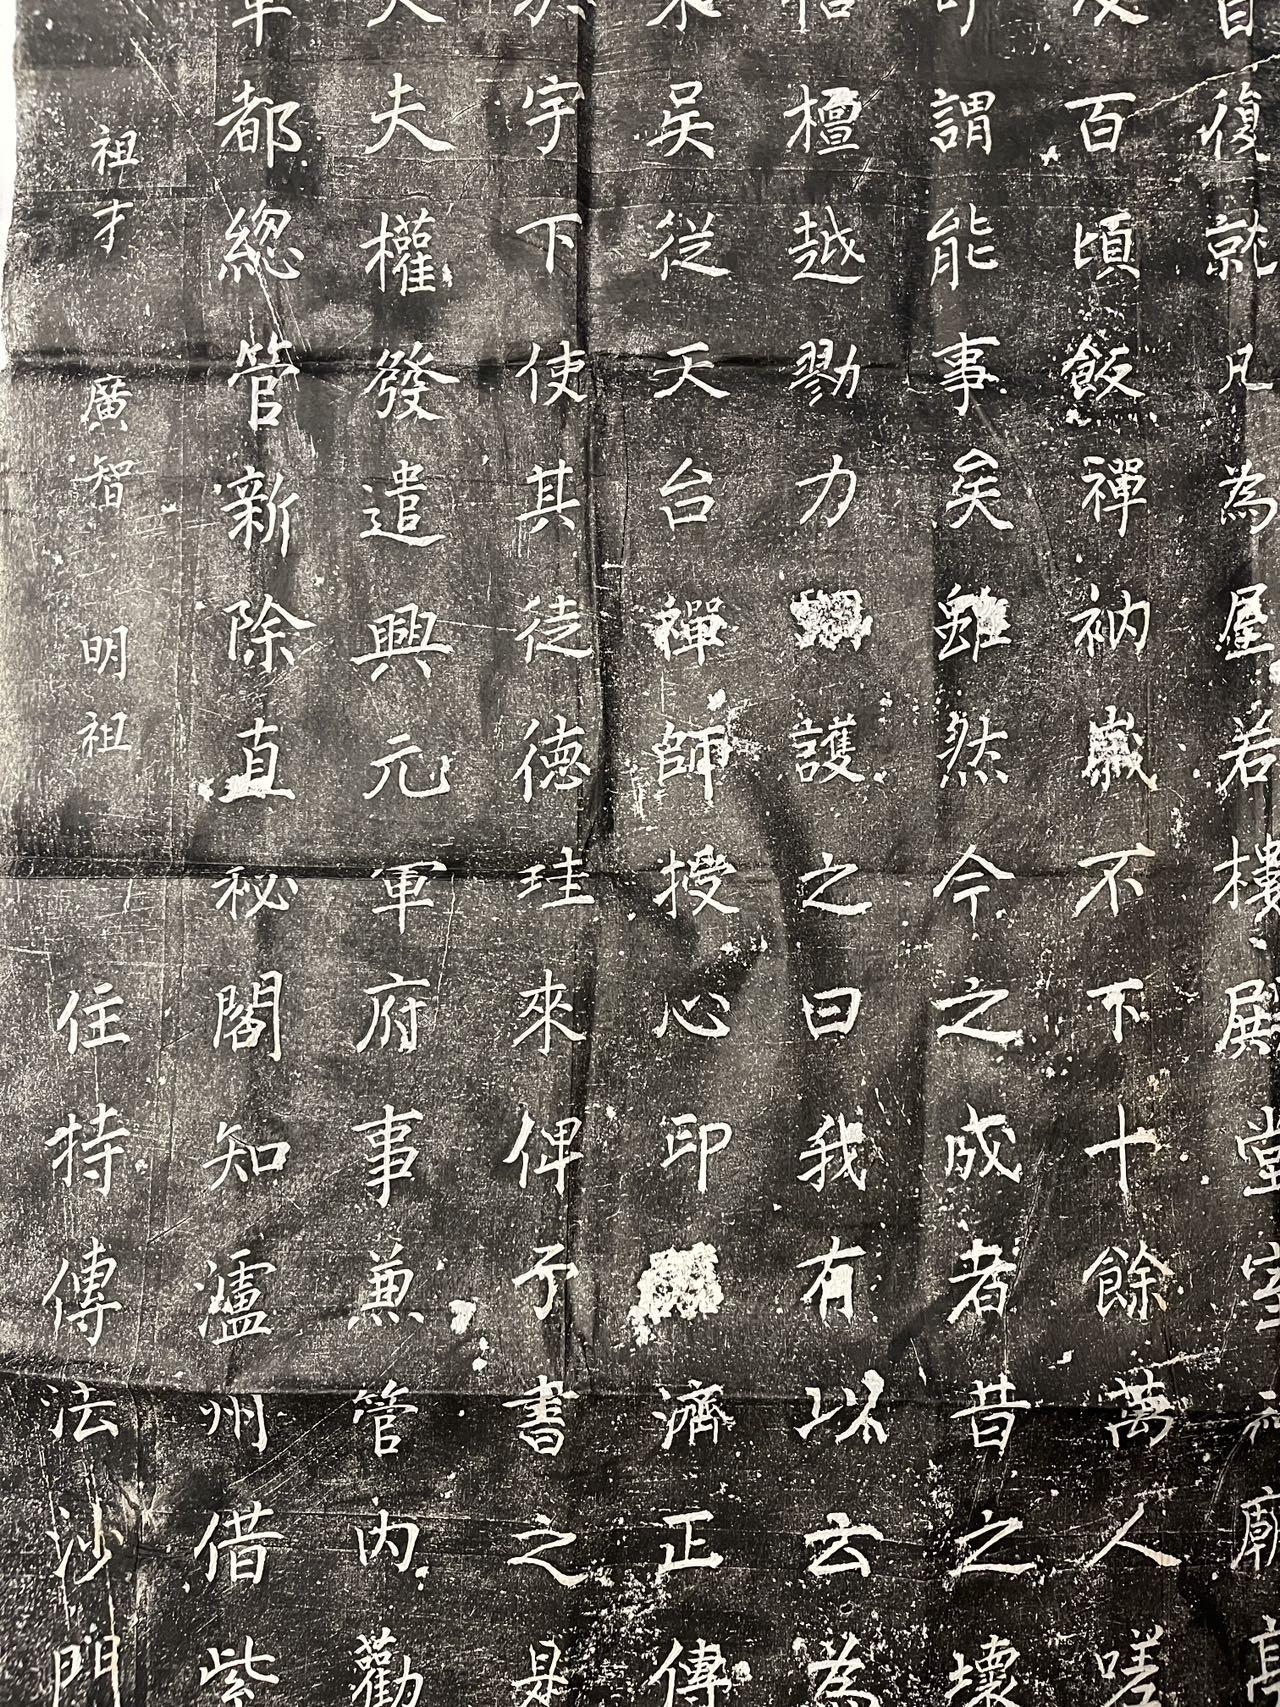 復就凡為屋若樓殿堂室
百頃飯禪衲歲不下十餘萬人嗟
謂能事矣雖然今之成者昔之壞
檀越勠力護之曰我有以云為
吴從天台禪師授心印濟正傳
宇下使其徒德珪來俾予書之
夫權發遣興元軍府事兼管內勸
都總管新除直秘閣知瀘州借紫
祖才 廣智 明祖 住持傳法沙門